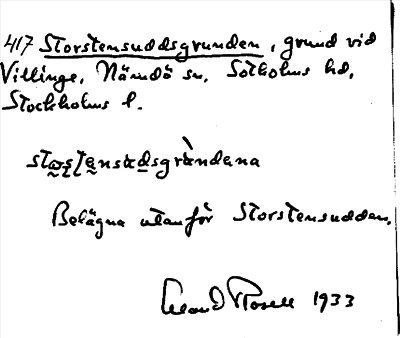 417 Storstensuddsgrunden, grund vid
Villinge, Nämdö sn, Sotholms hd,
Stockholms l.
stɷstensɐdsgrɐ̀ndɐna
Belägna utanför Storstensudden.
1933